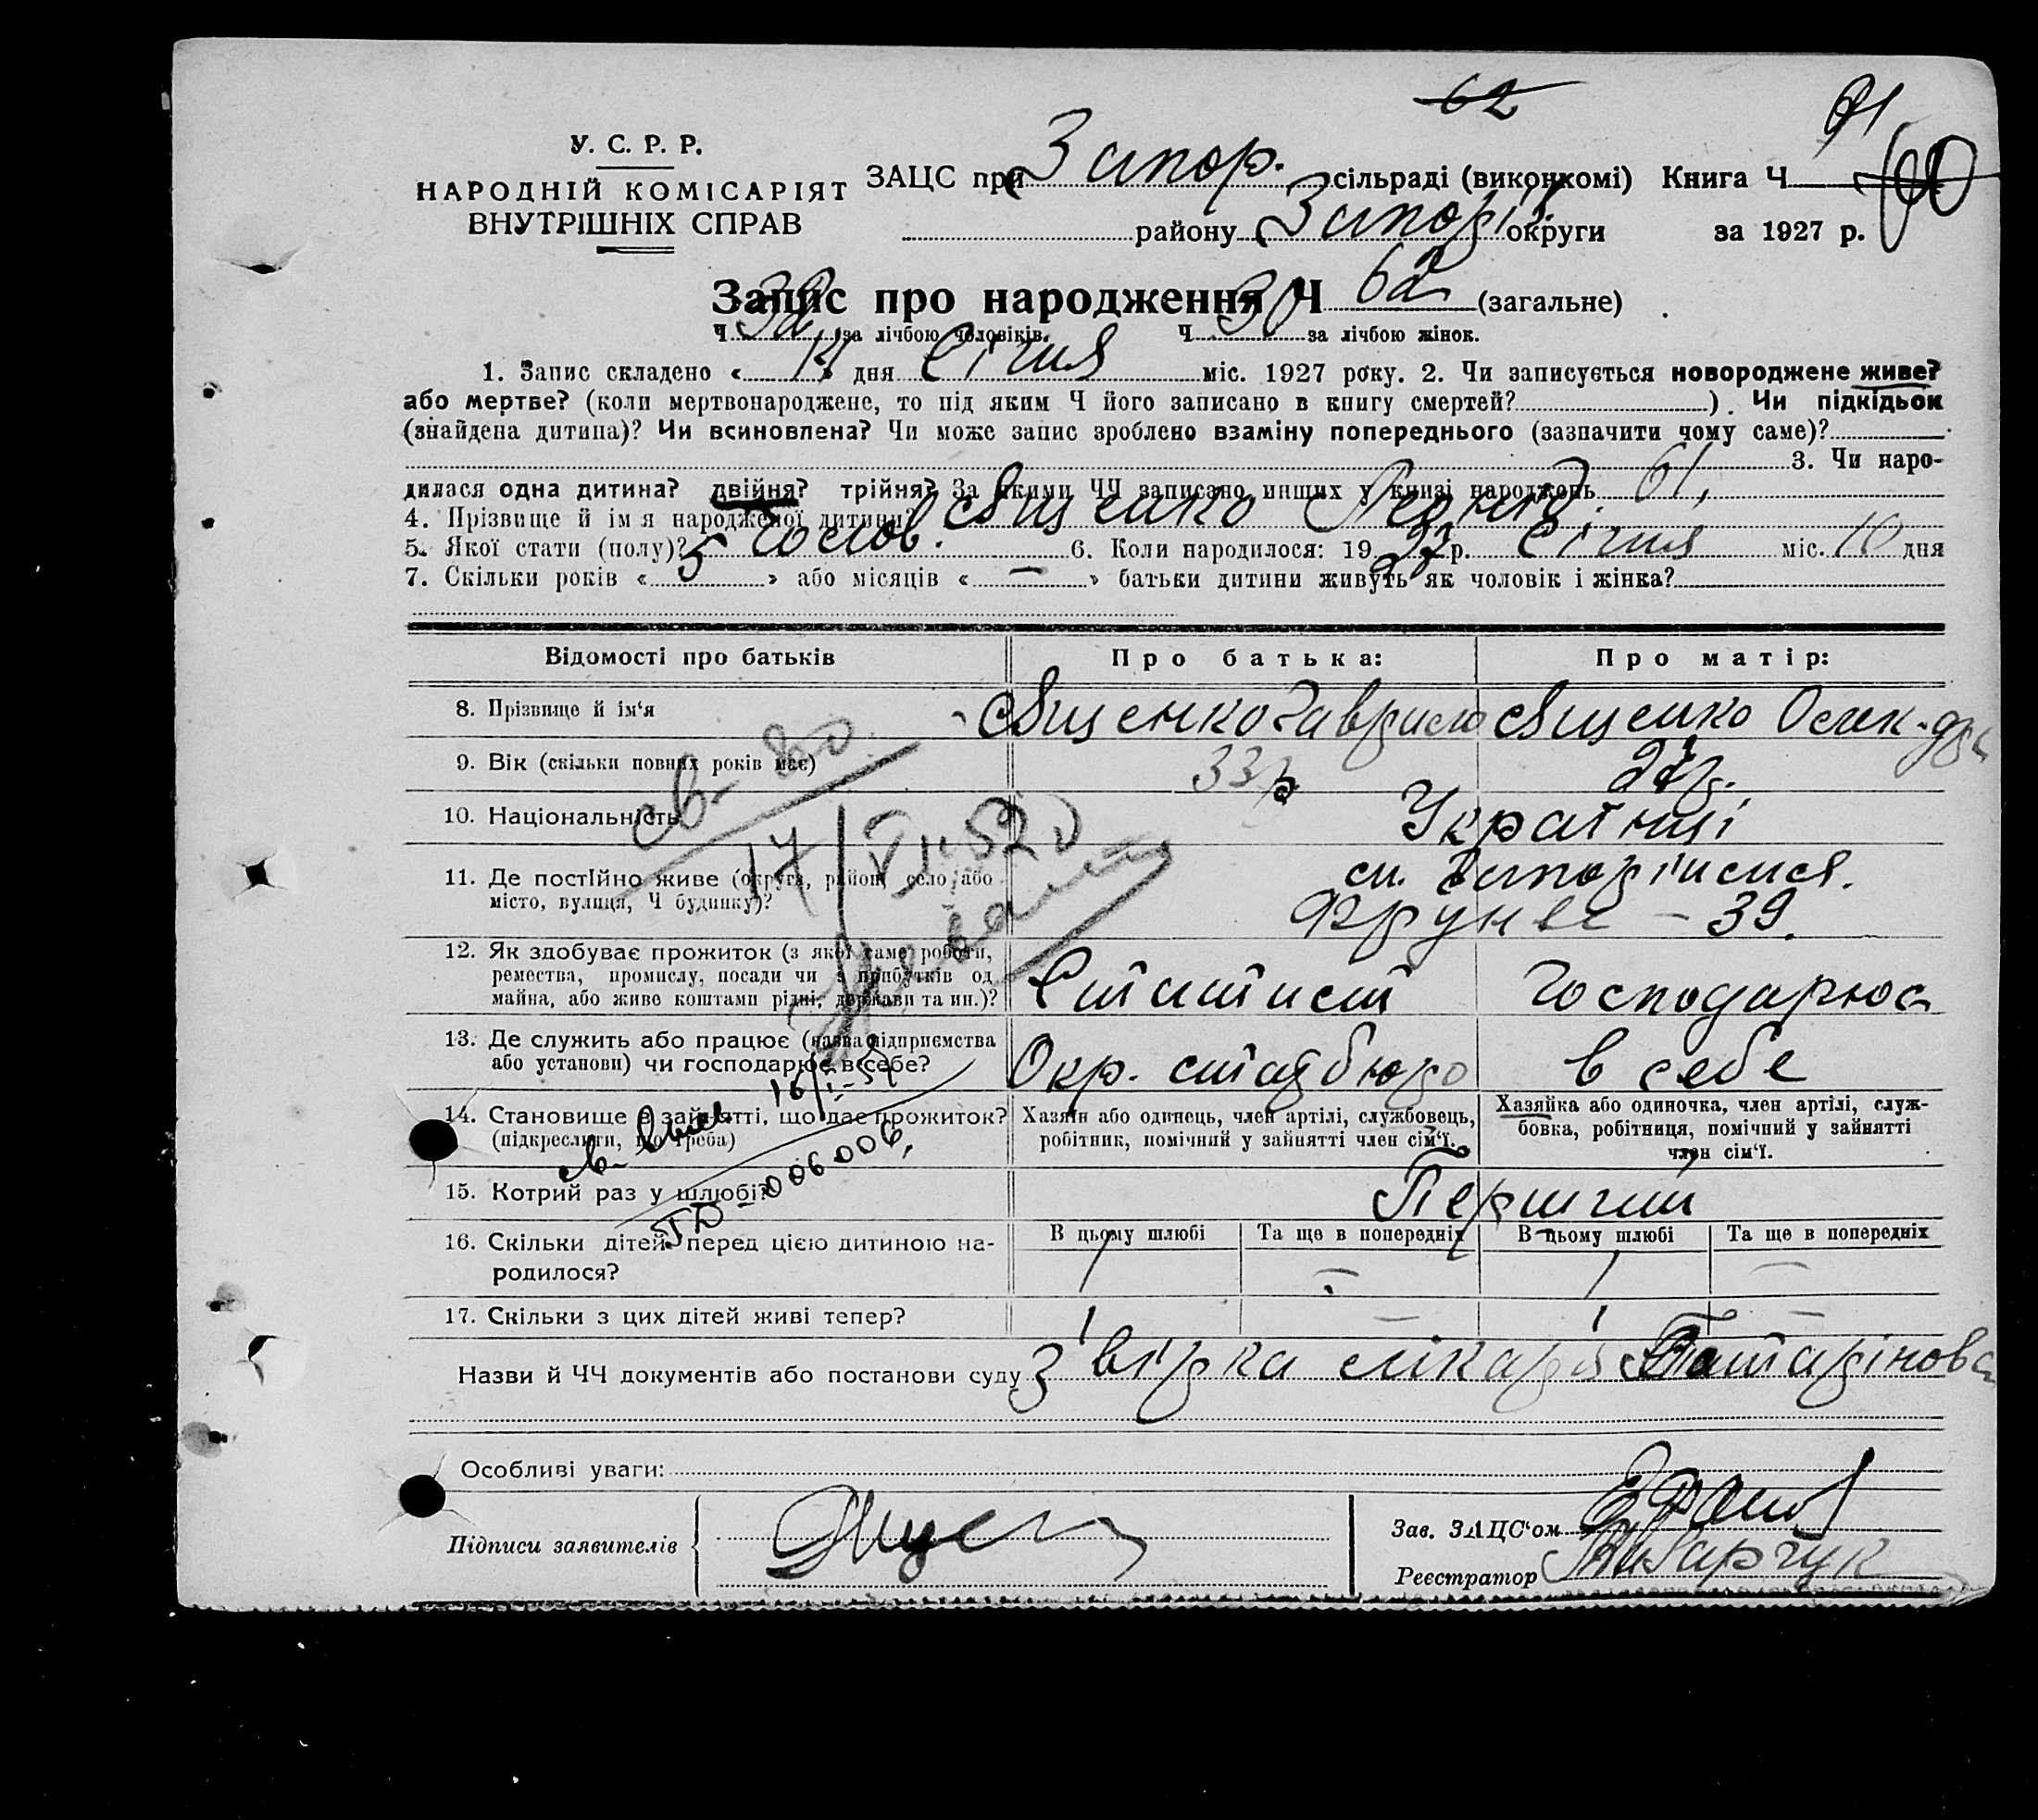 62
61
У. С. Р. Р.
НАРОДНІЙ КОМІСАРІЯТ
ВНУТРІШНІХ СПРАВ
ЗАЦС при Запор. сільраді (виконкомі) Книга Ч 60
району Запоріз. округи за 1927 р.
Запис про народження Ч 62 (загальне)
Ч 32 за лічбою чоловіків. Ч 30 за лічбою жінок.
1. Запис складено « 14 » дня Січня міс. 1927 року. 2. Чи записується новороджене живе?
або мертве? (коли мертвонароджене, то під яким Ч його записано в книгу смертей? ). Чи підкідьок
(знайдена дитина)? Чи всиновлена? Чи може запис зроблено взаміну попереднього (зазначити чому саме)?
3. Чи наро-
дилася одна дитина? двійня? трійня? За якими ЧЧ записано инших у книзі народжень 61,
4. Прізвище й імя народженої дитини? Ященко Леонід.
5. Якої стати (полу)? Чолов. 6. Коли народилося: 1927 р. Січня міс. 10 дня
7. Скільки років « 5 » або місяців « — » батьки дитини живуть як чоловік і жінка?
Відомості про батьків Про батька: Про матір:
8. Прізвище й ім'я Ященко Гаврило Ященко Олек-дра
9. Вік (скільки повних років має) 33 р. 27 р.
10. Національність Українці
11. Де постійно живе (округа, район, село або м. Запоріжжя.
місто, вулиця, Ч будинку)? Фрунзе — 39.
12. Як здобуває прожиток (з якої саме роботи,
ремества, промислу, посади чи з прибутків од Статист Господарює
майна, або живе коштами рідні, держави та ин.)?
13. Де служить або працює (назва підприємства
або установи) чи господарює в себе? Окр. статбюро в себе
14. Становище в зайнятті, що дає прожиток? Хазяїн або одинець, член артілі, службовець, Хазяйка або одиночка, член артілі, служ-
(підкреслити, що треба) робітник, помічний у зайнятті член сім'ї. бовка, робітниця, помічний у зайнятті
член сім'ї.
15. Котрий раз у шлюбі? Перший
16. Скільки дітей перед цією дитиною на- В цьому шлюбі Та ще в попередніх В цьому шлюбі Та ще в попередніх
родилося? 1 — 1 —
17. Скільки з цих дітей живі тепер? 1 — 1 —
Назви й ЧЧ документів або постанови суду Звірка лікаря Татарінова
Особливі уваги:
Підписи заявителів
Зав. ЗАЦС'ом
Реєстратор
17/VI-52
16/I-54
006006,